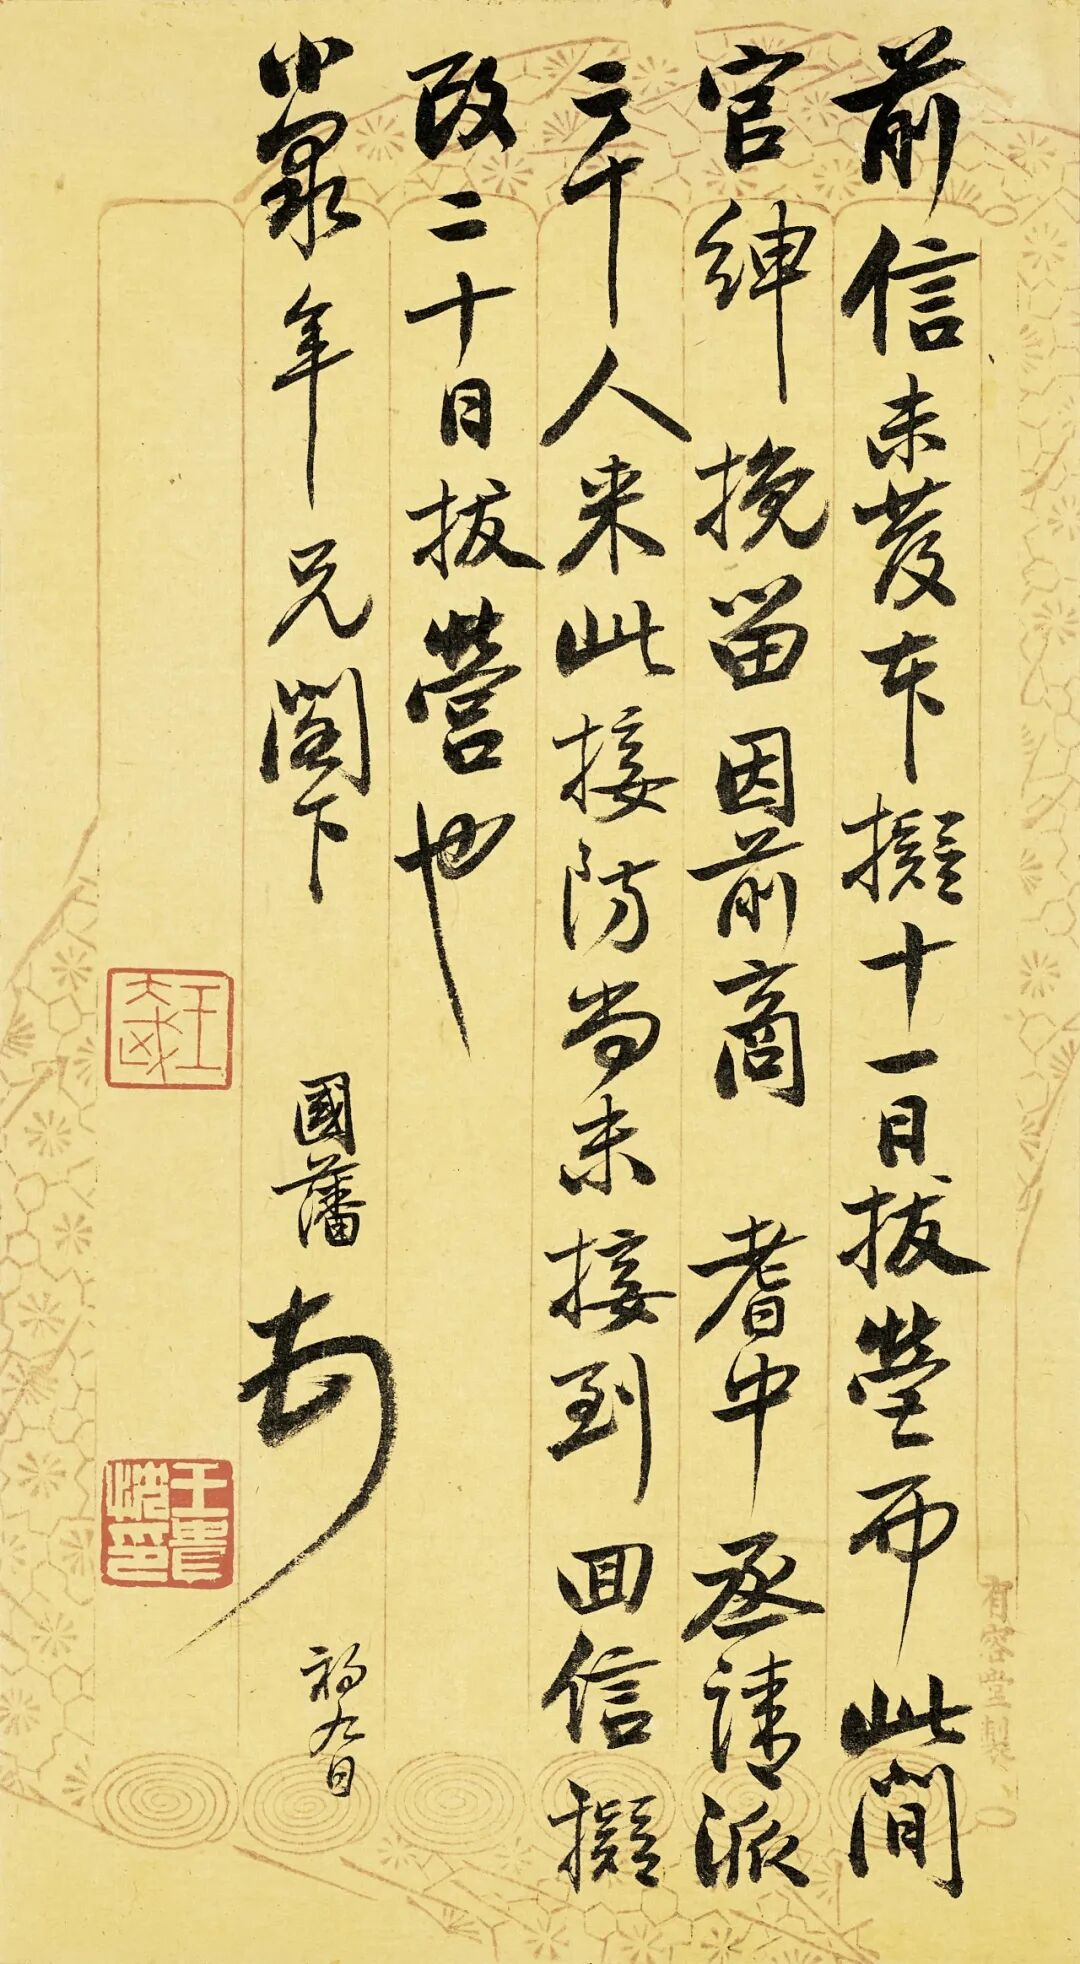 前信未發本擬十一日拔營而此間
官紳挽留因前商耆中丞請派
二千人来此接防尚未接到回信擬
改二十日拔營也
小泉年兄閣下 國藩 初九日
王貴忱印
有容堂製